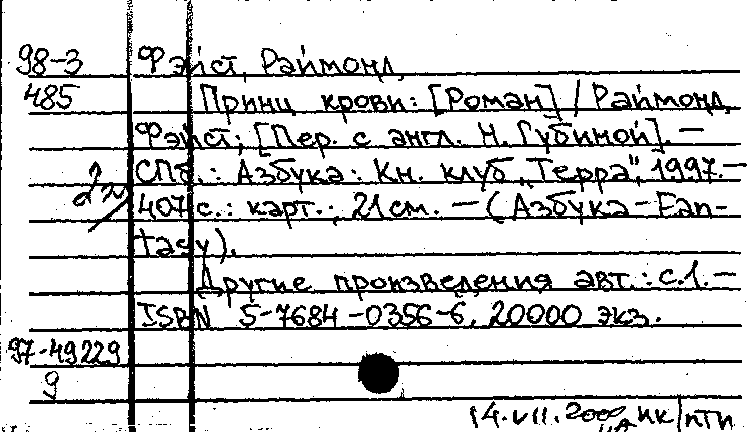 98-3 Фэйст, Раймонд.
485 Принц крови: [Роман] / Раймонд
Фэйст; [Пер. с англ. Н. Губиной]. —
СПб.: Азбука: Кн. клуб „Терра", 1997. —
407 с.: карт.; 21 см. — (Азбука-Fan-
tasy).
Другие произведения авт.: с.1. —
ISBN 5-7684-0356-6, 20000 экз.
97-49229
9
14.VII.2000 ИК/ПТИ